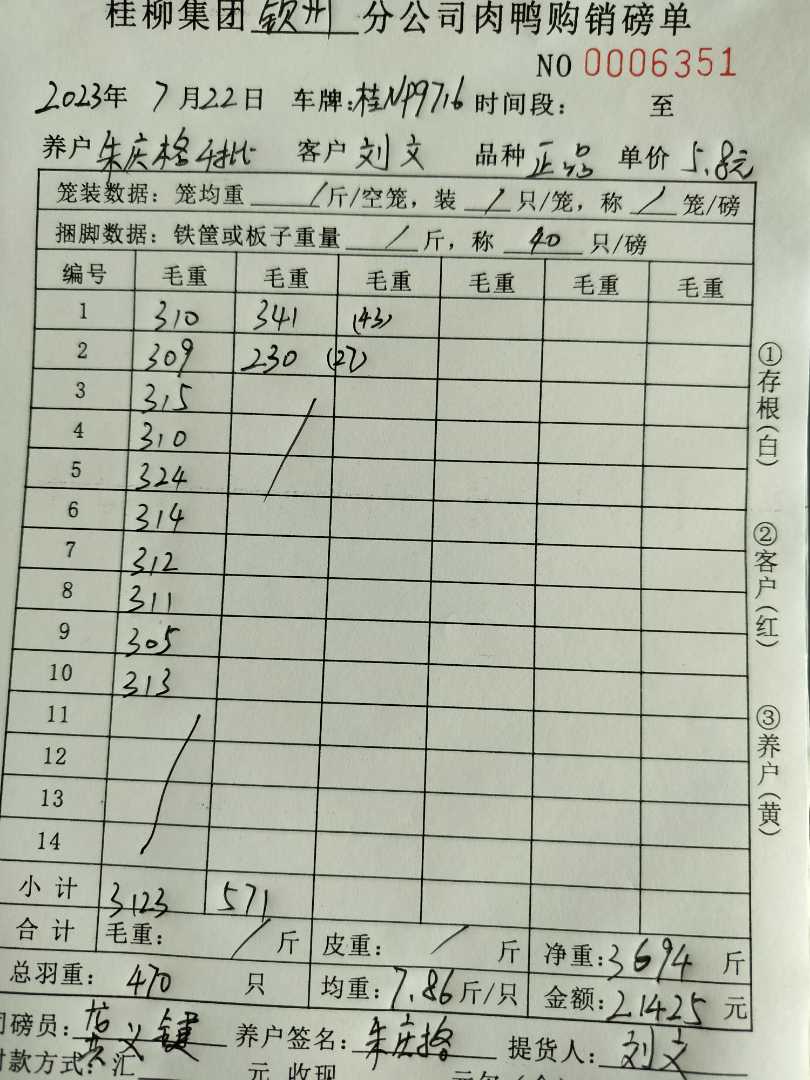 桂柳集团 钦州 分公司肉鸭购销磅单
NO 0006351
2023年 7月22日 车牌:桂NP9716 时间段: 至
养户 朱庆格 客户 刘文 品种 正品 单价 5.8元
笼装数据: 笼均重 / 斤/空笼, 装 / 只/笼, 称 / 笼/磅
捆脚数据: 铁筐或板子重量 / 斤, 称 40 只/磅
编号 毛重 毛重 毛重 毛重 毛重 毛重
1 310 341 (43)
2 309 230 (27)
3 315
4 310
5 324
6 314
7 312
8 311
9 305
10 313
11
12
13
14
小计 3123 571
合计 毛重: / 斤 皮重: / 斤 净重:3694 斤
总羽重: 470 只 均重:7.86斤/只 金额:21425 元
司磅员: 养户签名: 朱庆格 提货人: 刘文
付款方式:汇 元 收现
①存根(白)
②客户(红)
③养户(黄)